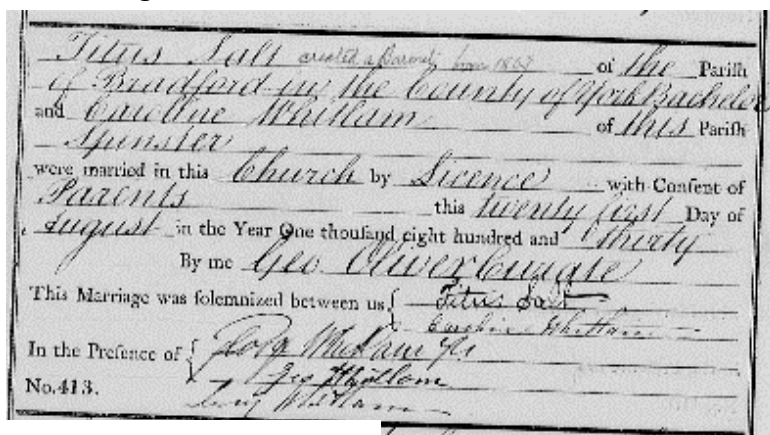 Titus Salt created a Baronet of the Parish
of Bradford in the County of York Bachelor
and Caroline Whitlam of this Parish
Spinster
were married in this Church by Licence with Consent of
Parents this twenty first Day of
August in the Year One thousand eight hundred and thirty
By me Geo Oliver Curate
This Marriage was solemnized between us { Titus Salt
Caroline Whitlam
In the Presence of { Whitlam
Geo Whitlam
No.413.
Whitlam